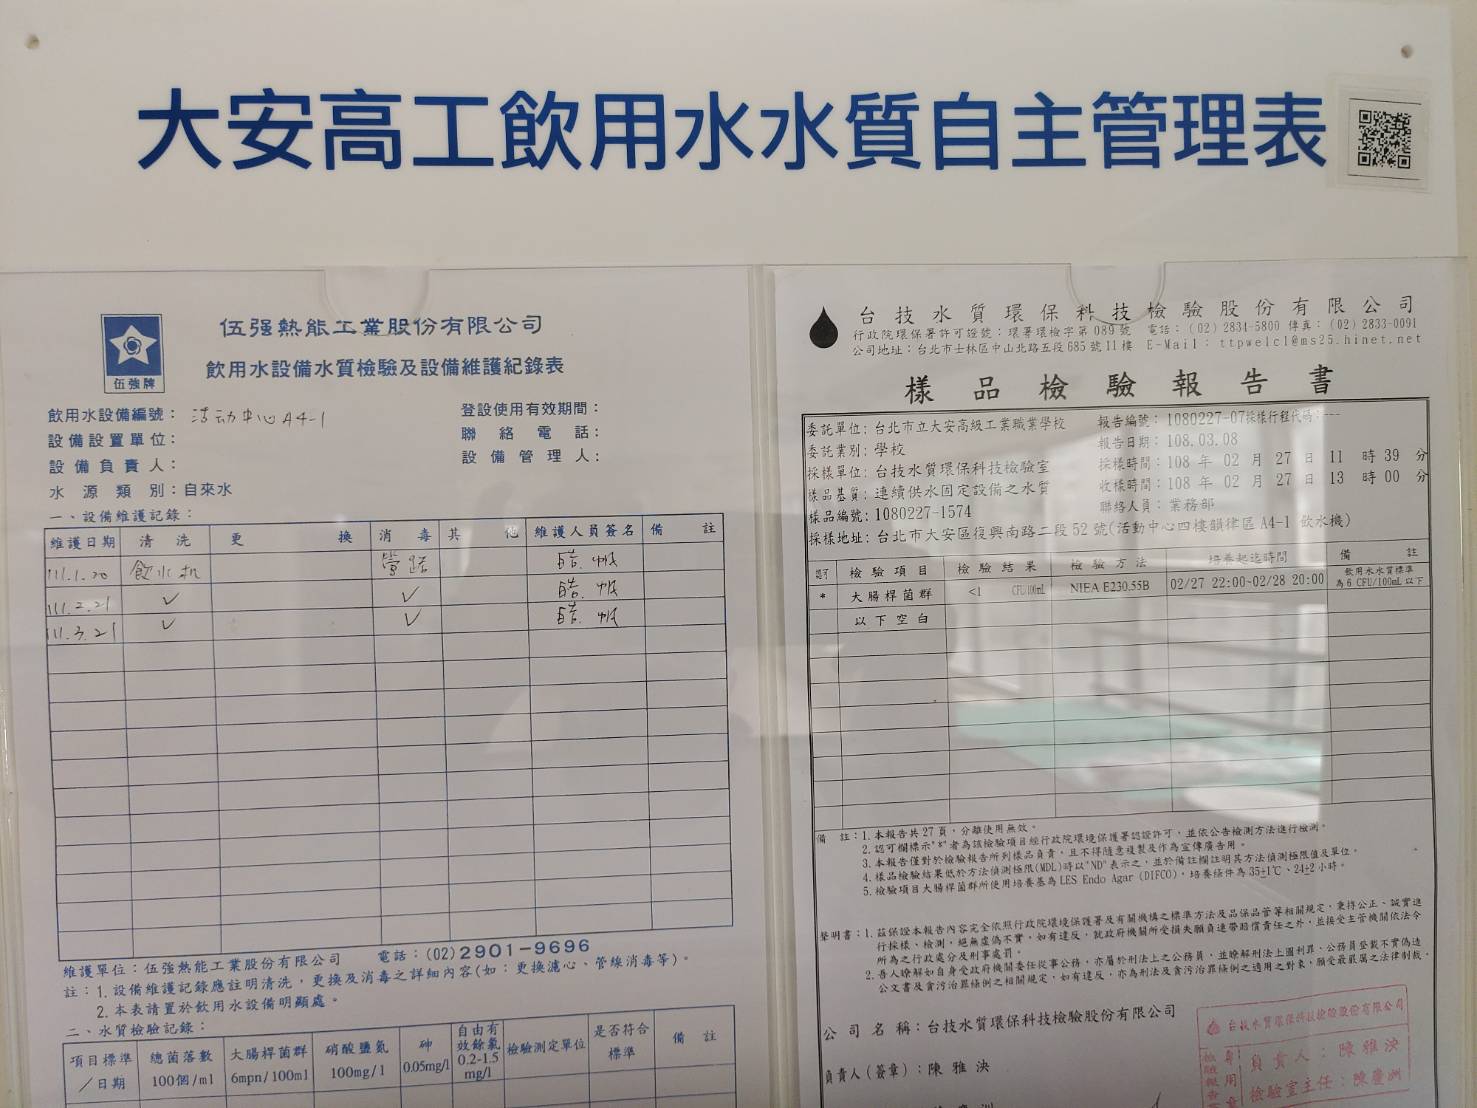 大安高工飲用水水質自主管理表
伍強牌
伍强熱能工業股份有限公司
飲用水設備水質檢驗及設備維護紀錄表
飲用水設備編號：活动中心A4-1
登設使用有效期間：
設備設置單位：
聯絡電話：
設備負責人：
設備管理人：
水源類別：自來水
一、設備維護記錄：
維護日期 清洗 更換 消毒 其他 維護人員簽名 備註
111.1.20 飲水机 管路
111.2.21 ✓ ✓
111.3.21 ✓ ✓
維護單位：伍強熱能工業股份有限公司 電話：(02)2901-9696
註：1.設備維護記錄應註明清洗，更換及消毒之詳細內容(如：更換濾心、管線消毒等)。
2.本表請置於飲用水設備明顯處。
二、水質檢驗記錄：
項目標準／日期 總菌落數100個/ml 大腸桿菌群6mpn/100ml 硝酸鹽氮100mg/l 砷0.05mg/l 自由有效餘氯0.2-1.5mg/l 檢驗測定單位 是否符合標準 備註
台技水質環保科技檢驗股份有限公司
行政院環保署許可證號：環署環檢字第089號 電話：(02)2831-5800 傳真：(02)2833-0091
公司地址：台北市士林區中山北路五段685號11樓 E-Mail：ttpwelcl@ms25.hinet.net
樣品檢驗報告書
委託單位：台北市立大安高級工業職業學校
報告編號：1080227-07採樣行程代碼：---
委託業別：學校
報告日期：108.03.08
採樣單位：台技水質環保科技檢驗室
採樣時間：108年02月27日11時39分
樣品基質：連續供水固定設備之水質
收樣時間：108年02月27日13時00分
樣品編號：1080227-1574
聯絡人員：業務部
採樣地址：台北市大安區復興南路二段52號(活動中心四樓韻律區A4-1飲水機)
認可 檢驗項目 檢驗結果 檢驗方法 培養起迄時間 備註
* 大腸桿菌群 <1 CFU/100mL NIEA E230.55B 02/27 22:00~02/28 20:00 飲用水水質標準為6 CFU/100mL以下
以下空白
備註：1.本報告共27頁，分離使用無效。
2.認可欄標示"*"者為該檢驗項目經行政院環境保護署認證許可，並依公告檢測方法進行檢測。
3.本報告僅對於檢驗報告所列樣品負責，且不得隨意複製及作為宣傳廣告用。
4.樣品檢驗結果低於方法偵測極限(MDL)時以"ND"表示之，並於備註欄註明其方法偵測極限值及單位。
5.檢驗項目大腸桿菌群所使用培養基為LES Endo Agar (DIFCO)，培養條件為35±1℃、24±2小時。
聲明書：1.茲保證本報告內容完全依照行政院環境保護署及有關機構之標準方法及品保品管等相關規定，秉持公正、誠實進
行採樣、檢測，絕無虛偽不實，如有違反，就政府機關所受損失願負連帶賠償責任之外，並接受主管機關依法令
所為之行政處分及刑事處罰。
2.吾人瞭解如自身受政府機關委任從事公務，亦屬於刑法上之公務員，並瞭解刑法上圖利罪、公務員登載不實偽造
公文書及貪污治罪條例之相關規定，如有違反，亦為刑法及貪污治罪條例之適用之對象，願受最嚴厲之法律制裁。
公司名稱：台技水質環保科技檢驗股份有限公司
負責人(簽章)：陳雅泱
台技水質環保科技檢驗股份有限公司
負責人：陳雅泱
檢驗室主任：陳慶洲